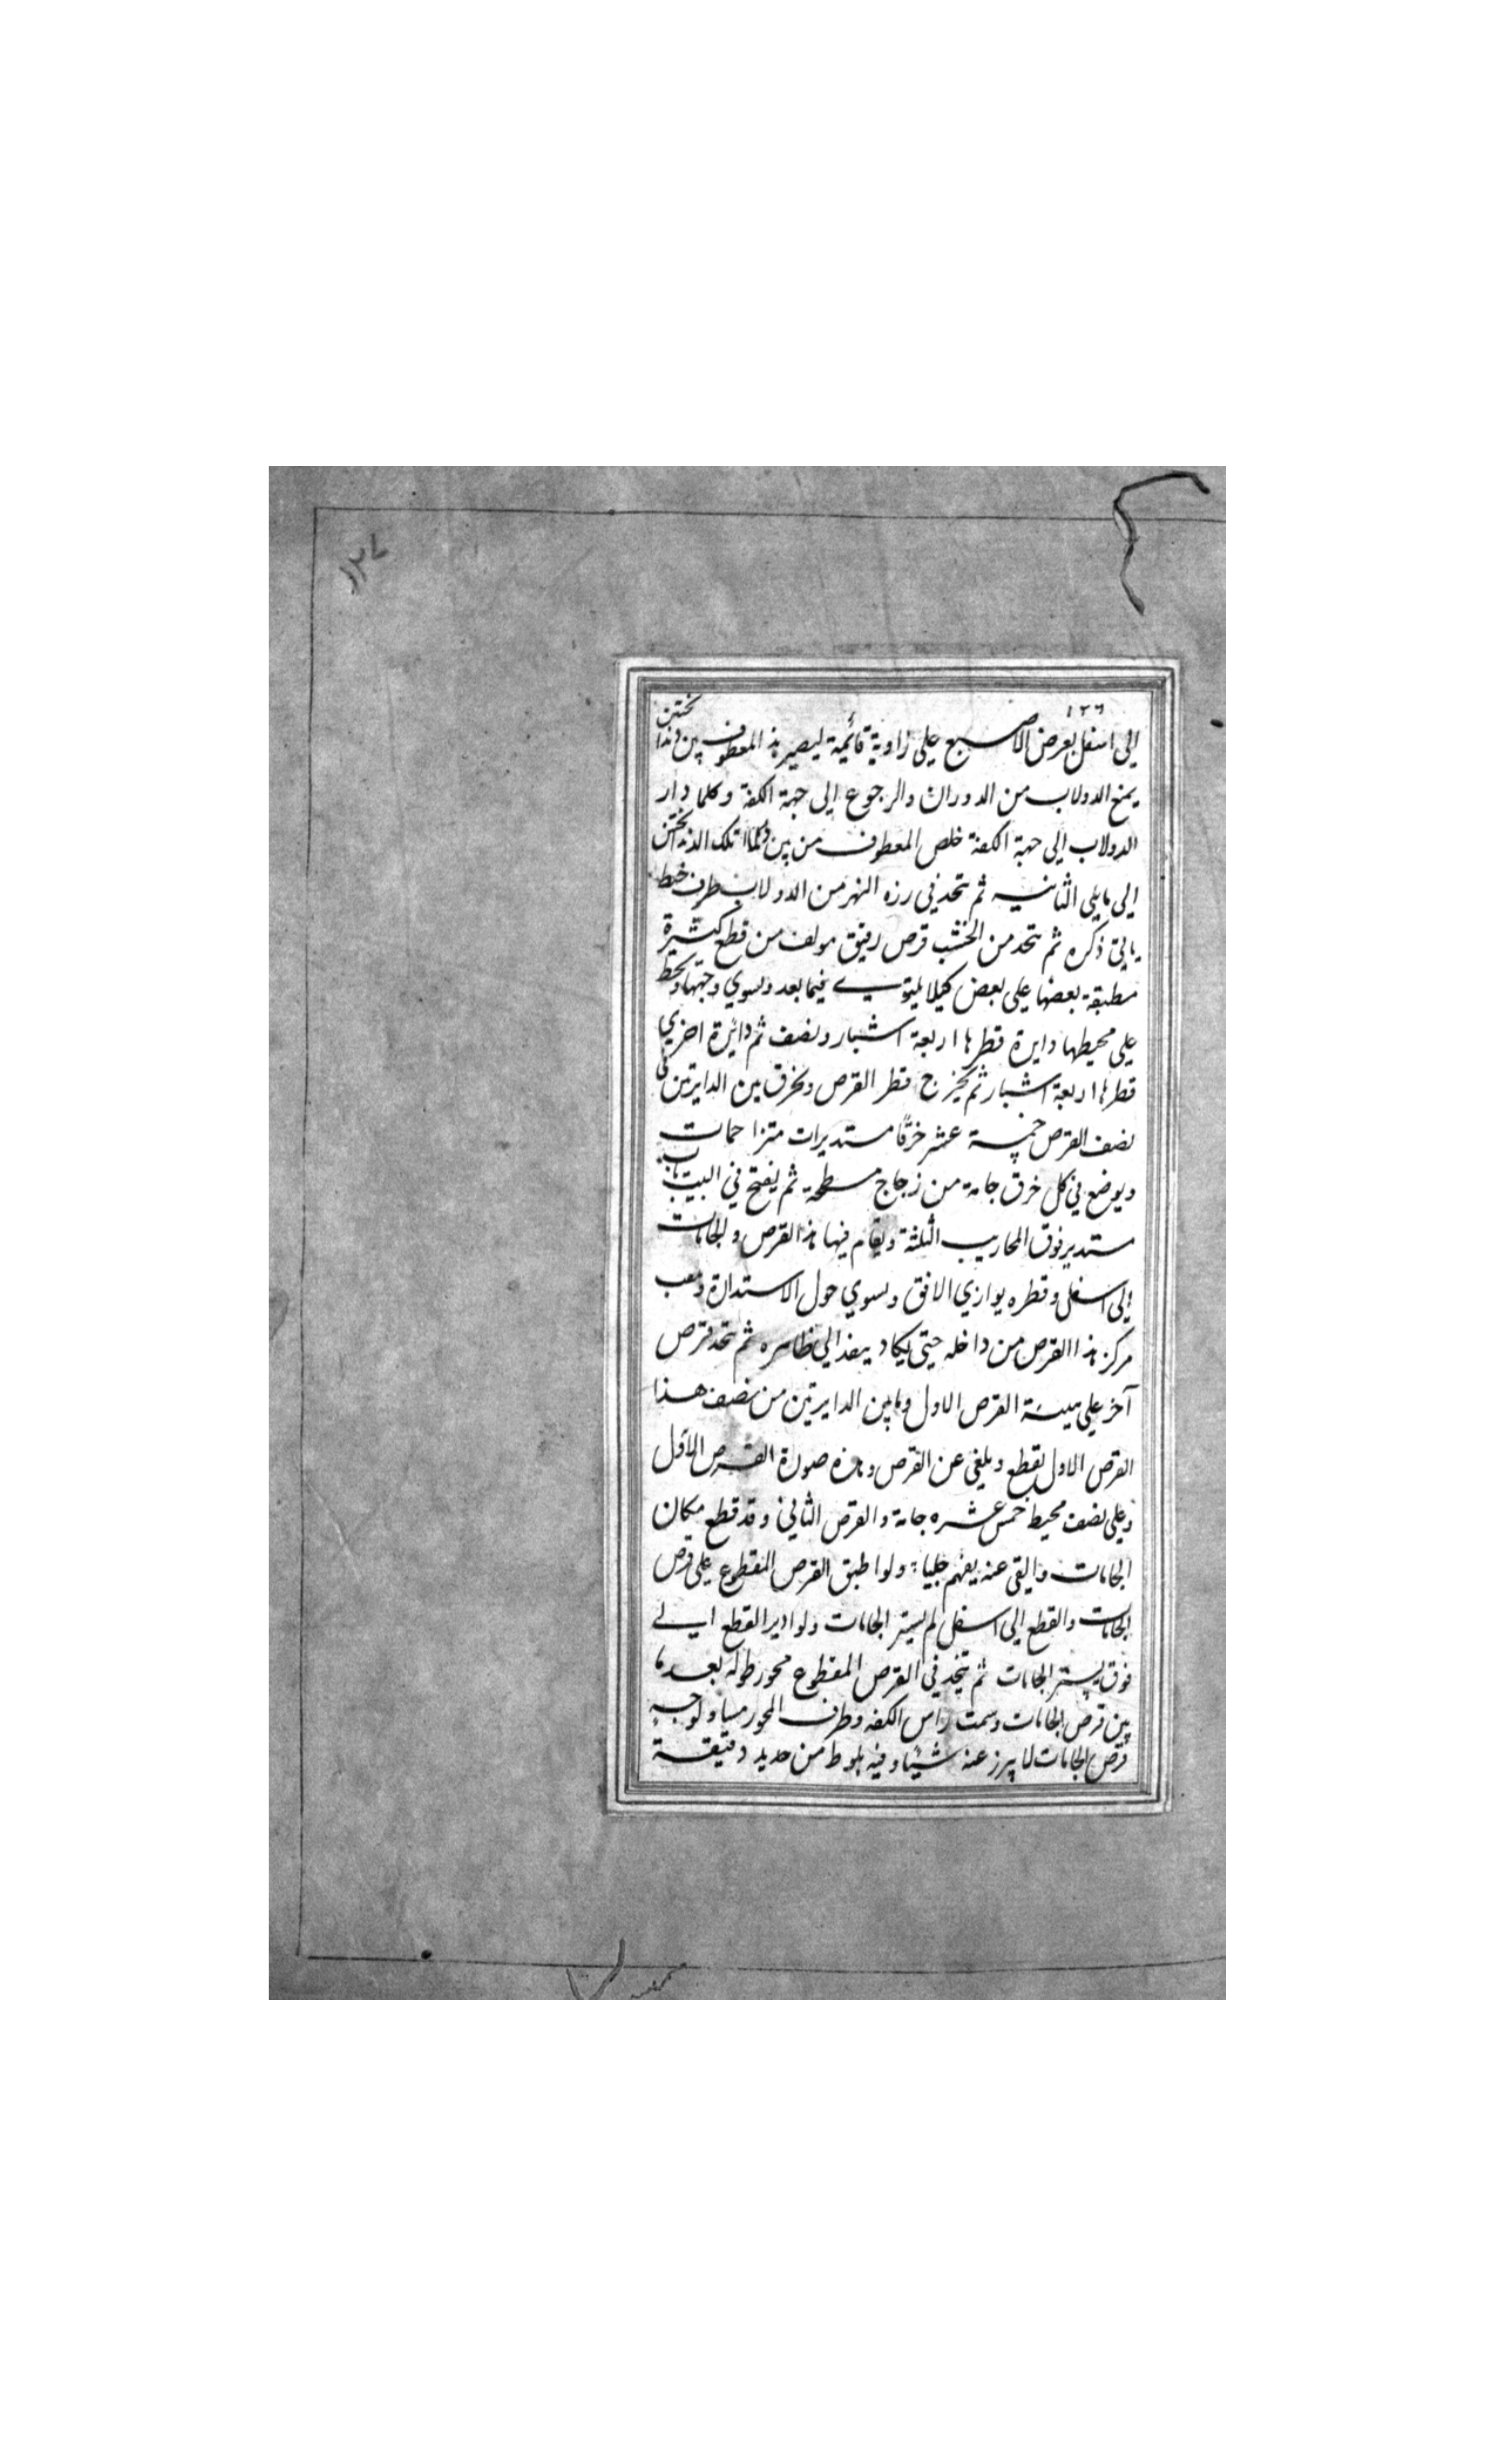 ١٢٧
١٢٦
إلى اسفل بعرض الاصبع على زاوية قائمة ليصير هذا المعطوف بين دندانختين
يمنع الدولاب من الدوران والرجوع الى جهة الكفة وكلما دار
الدولاب الى جهة الكفة خلص المعطوف من بين تلك الدندانختين
الى مايلى الثانيه ثم يتخد فى رزه النهر من الدولاب طرف خيط
ياتى ذكره ثم يتخد من الخشب قرص رقيق مولف من قطع كثيرة
مطبقة بعضها على بعض كيلا يلتوى فيما بعد ويسوي وجهها ويخط
على محيطها دايرة قطرها اربعة اشبار ونصف ثم دائرة اخري
قطرها اربعة اشبار ثم يخرج قطر القرص ويخرق بين الدايرتين فى
نصف القرص خمسة عشر خرقًا مستديرات متزاحمات
ويوضع فى كل خرق جامة من زجاج مسطحة ثم يفتح في البيت باب
مستدير فوق المحاريب الثلثة ويقام فيها هذا القرص والجامات
إلى اسفل وقطره يوازي الافق ويسوي حول الاستدارة
مركز هذا القرص من داخله حتى يكاد ينفد الى ظاهره ثم يتخد قرص
آخر على هيئة القرص الاول وما بين الدايرتين من نصف هذا
القرص الاول يقطع ويلغى عن القرص وهذه صورة القرص الأول
وعلى نصف محيط خمس عشره جامة والقرص الثانى وقد قطع مكان
الجامات والقى عنه يفهم جليا ولو اطبق القرص المقطوع على قرص
الجامات والقطع إلى اسفل لم يستر الجامات ولو ادير القطع الى
فوق يستر الجامات ثم يتخد فى القرص المقطوع محور طوله بعد ما
بين قرص الجامات وسمت راس الكفه وطرف المحور مساو لوجه
قرص الجامات لا يبرز عنه شيئًا وفيه بلوط من حديد دقيقة